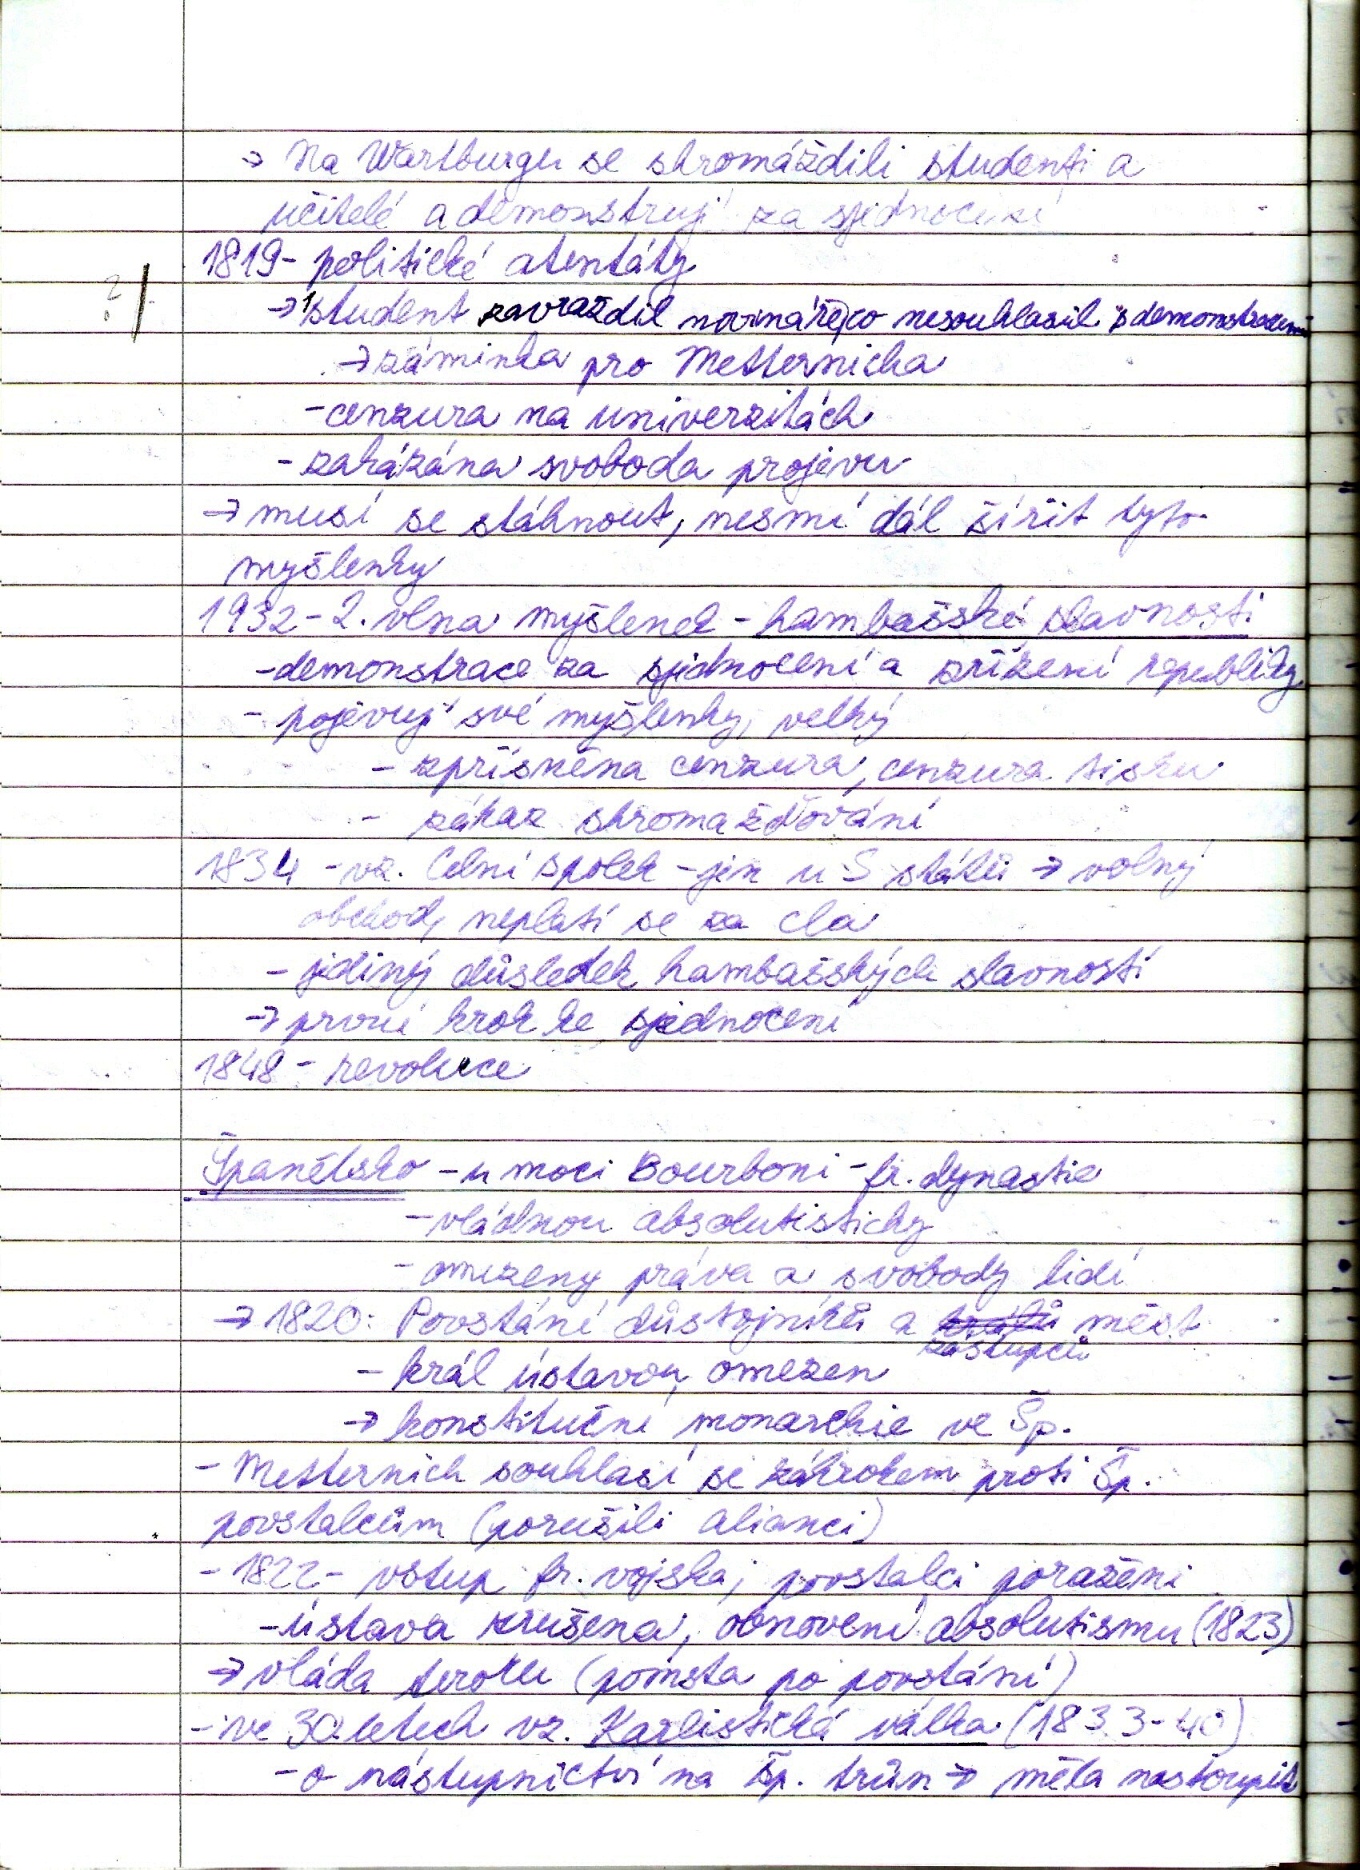 → Na Wartburgu se shromáždili studenti a
učitelé a demonstrují za sjednocení
1819 - politické atentáty
?
→ 1 student zavraždil novináře, co nesouhlasil s demonstracemi
→ záminka pro Metternicha
- cenzura na univerzitách
- zakázána svoboda projevu
→ musí se stáhnout, nesmí dál šířit tyto
myšlenky
1932 - 2. vlna myšlenek - hambašské slavnosti
- demonstrace za sjednocení a zřízení republiky
- pojevují své myšlenky, velký
- zpřísněna cenzura, cenzura tisku
- zákaz shromažďování
1834 - vz. Celní spolek - jen u S států → volný
obchod, neplatí se za cla
- jediný důsledek hambašských slavností
→ první krok ke sjednocení
1848 - revoluce
Španělsko - u moci Bourboni - fr. dynastie
- vládnou absolutisticky
- omezeny práva a svobody lidí
→ 1820: Povstání důstojníků a králů měst
zástupců
- král ústavou omezen
→ konstituční monarchie ve Šp.
- Metternich souhlasí se zákrokem proti Šp.
povstalcům (porušili alianci)
- 1822 - vstup fr. vojska, povstalci poraženi
- ústava zrušena, obnovení absolutismu (1823)
→ vláda teroru (pomsta po povstání)
- ve 30. letech vz. Karlistická válka (1833-40)
- o nástupnictví na šp. trůn → měla nastoupit